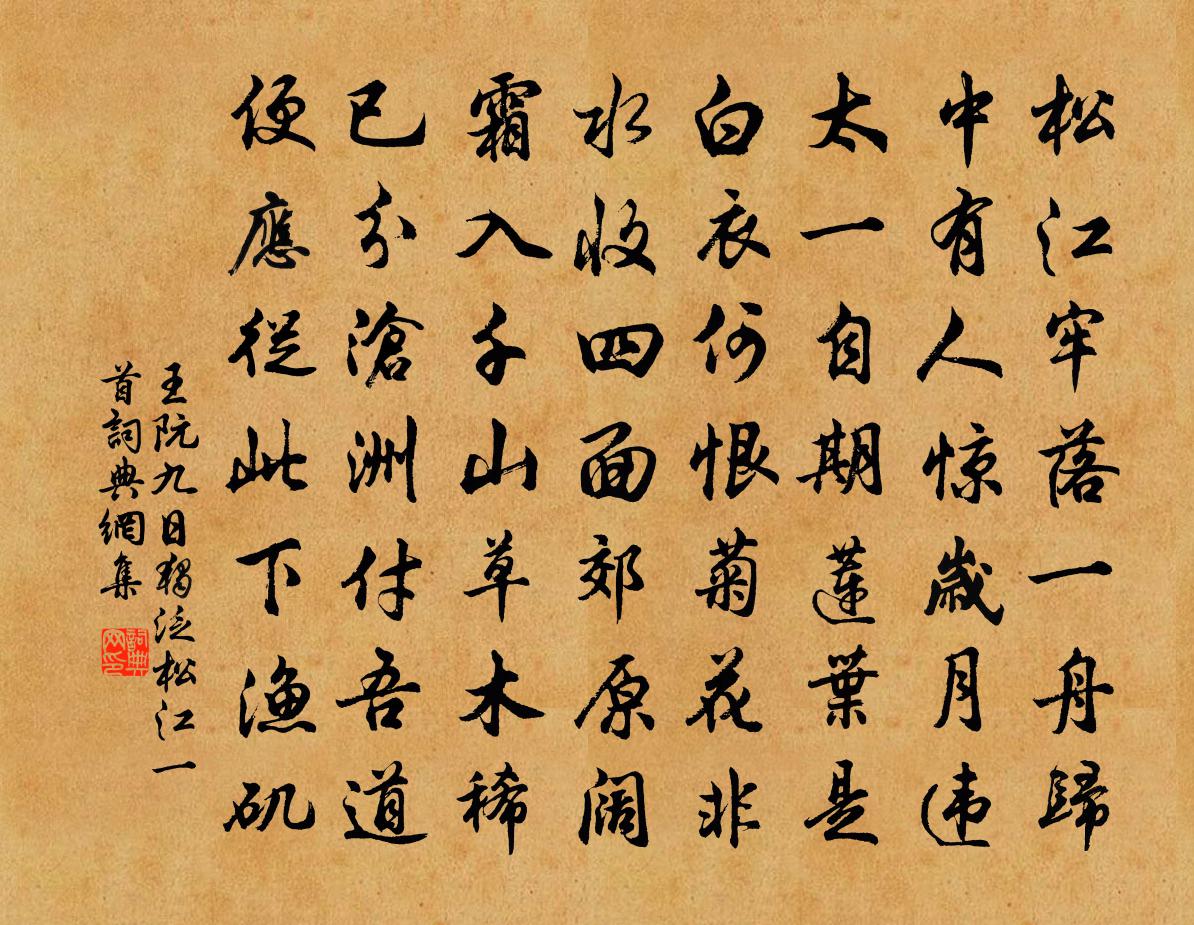 松江牢落一舟歸
中有人惊歲月违
太一自期蓮葉是
白衣何恨菊花非
水收四面郊原阔
霜入千山草木稀
已分滄洲付吾道
便應從此下漁矶
王阮九日獨泛松江一
首詞典網集
詞典
网印